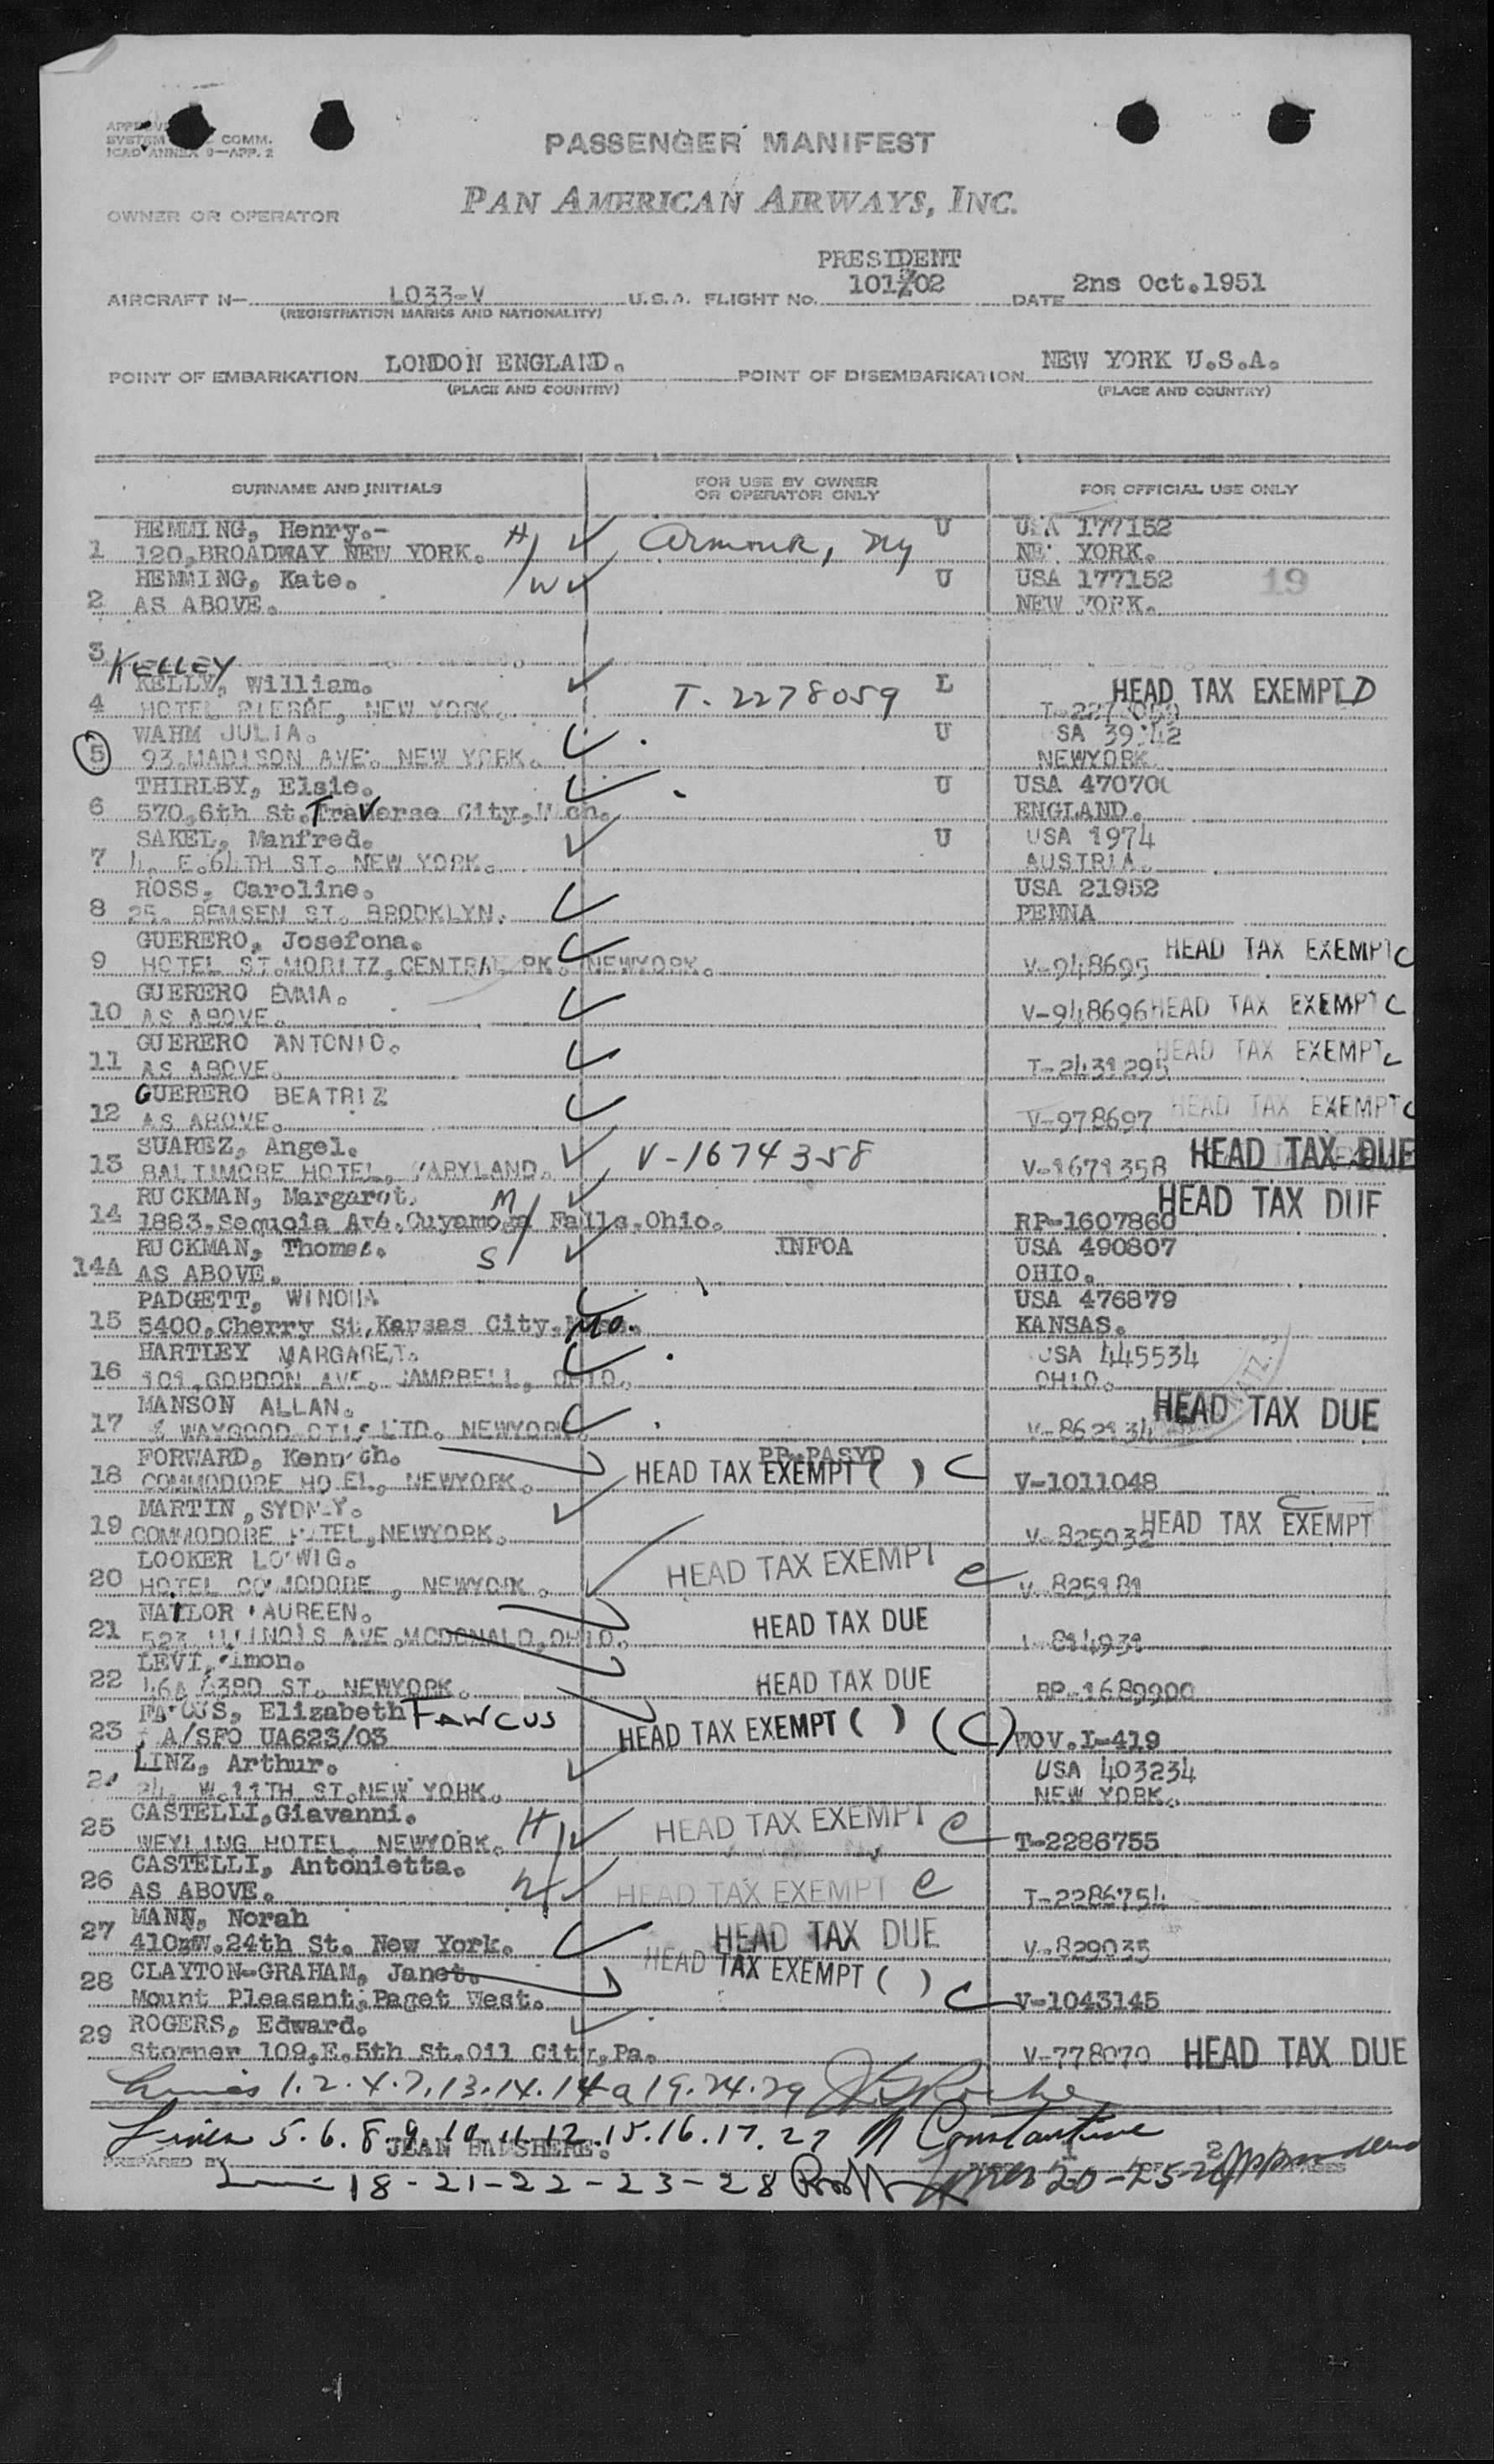 PASSENGER MANIFEST
SYSTEM COMM.
ICAO ANNEX 9—APP. 2
OWNER OR OPERATOR
PAN AMERICAN AIRWAYS, INC.
PRESIDENT
AIRCRAFT N— L033-V U.S.A. FLIGHT No. 101/02 DATE 2ns Oct.1951
(REGISTRATION MARKS AND NATIONALITY)
POINT OF EMBARKATION LONDON ENGLAND. POINT OF DISEMBARKATION NEW YORK U.S.A.
(PLACE AND COUNTRY) (PLACE AND COUNTRY)
SURNAME AND INITIALS FOR USE BY OWNER OR OPERATOR ONLY FOR OFFICIAL USE ONLY
HEMMING, Henry.- H U USA 177152
1 120,BROADWAY NEW YORK. Armonk, NY NEW YORK.
HEMMING, Kate. W U USA 177152 19
2 AS ABOVE. NEW YORK.
3
KELLEY
KELLY, William. T-2278059 L HEAD TAX EXEMPT D
4 HOTEL PIERRE, NEW YORK. T-2278059
WAHM JULIA. U USA 39142
5 93,MADISON AVE. NEW YORK. NEWYORK
THIRLBY, Elsie. U USA 470700
6 570,6th St.Traverse City,Mich. ENGLAND.
SAKEL, Manfred. U USA 1974
7 4, E.64TH ST. NEW YORK. AUSTRIA.
ROSS, Caroline. USA 21952
8 25, REMSEN ST. BROOKLYN. PENNA
GUERERO, Josefona. HEAD TAX EXEMPT C
9 HOTEL ST.MORITZ,CENTRAL PK. NEWYORK. V-948695
GUERERO EMMA.
10 AS ABOVE. V-948696 HEAD TAX EXEMPT C
GUERERO ANTONIO. HEAD TAX EXEMPT C
11 AS ABOVE. T-2431295
GUERERO BEATRIZ HEAD TAX EXEMPT C
12 AS ABOVE. V-978697
SUAREZ, Angel. V-1674358 HEAD TAX DUE
13 BALTIMORE HOTEL, MARYLAND. V-1671358
RUCKMAN, Margaret. M HEAD TAX DUE
14 1883,Sequoia Ave,Cuyamoga Falls,Ohio. RP-1607860
RUCKMAN, Thomas. S INFOA USA 490807
14A AS ABOVE. OHIO.
PADGETT, WINONA USA 476879
15 5400,Cherry St,Kansas City, Mo. KANSAS.
HARTLEY MARGARET. USA 445534
16 101,GORDON AVE. CAMPBELL, OHIO. OHIO.
MANSON ALLAN. HEAD TAX DUE
17 WAYGOOD OTIS LTD. NEWYORK. V-862134
FORWARD, Kenneth. PP-PASYD
18 COMMODORE HOTEL, NEWYORK. HEAD TAX EXEMPT ( ) C V-1011048
MARTIN, SYDNEY. C
19 COMMODORE HOTEL,NEWYORK. V-825032 HEAD TAX EXEMPT
LOOKER LOWIG. HEAD TAX EXEMPT C
20 HOTEL COMMODORE , NEWYORK . V-825181
NAYLOR MAUREEN. HEAD TAX DUE
21 523, ILLINOIS AVE,MCDONALD,OHIO. 814931
LEVI, Simon. HEAD TAX DUE
22 NEWYORK. RP-1689900
Elizabeth FAWCUS
23 A/SFO UA623/03 HEAD TAX EXEMPT ( ) (C) NOV.I-419
LINZ, Arthur. USA 403234
24 24, W.11TH ST.NEW YORK. NEW YORK.
CASTELLI,Giavanni. H HEAD TAX EXEMPT C
25 WEYLING HOTEL, NEWYORK. T-2286755
CASTELLI, Antonietta. HEAD TAX EXEMPT C
26 AS ABOVE. T-2286754
MANN, Norah HEAD TAX DUE
27 410,W.24th St. New York. V-829035
CLAYTON-GRAHAM, Janet. HEAD TAX EXEMPT ( ) C
28 Mount Pleasant,Paget West. V-1043145
ROGERS, Edward.
29 Storner 109,E.5th St.Oil City,Pa. V-778070 HEAD TAX DUE
Lines 1.2.4.7.13.14.14a 19.24.29
Lines 5.6.8.9.10.11.12.15.16.17.27 Constantine
PREPARED BY JEAN
18-21-22-23-28 Lines 20-25-26